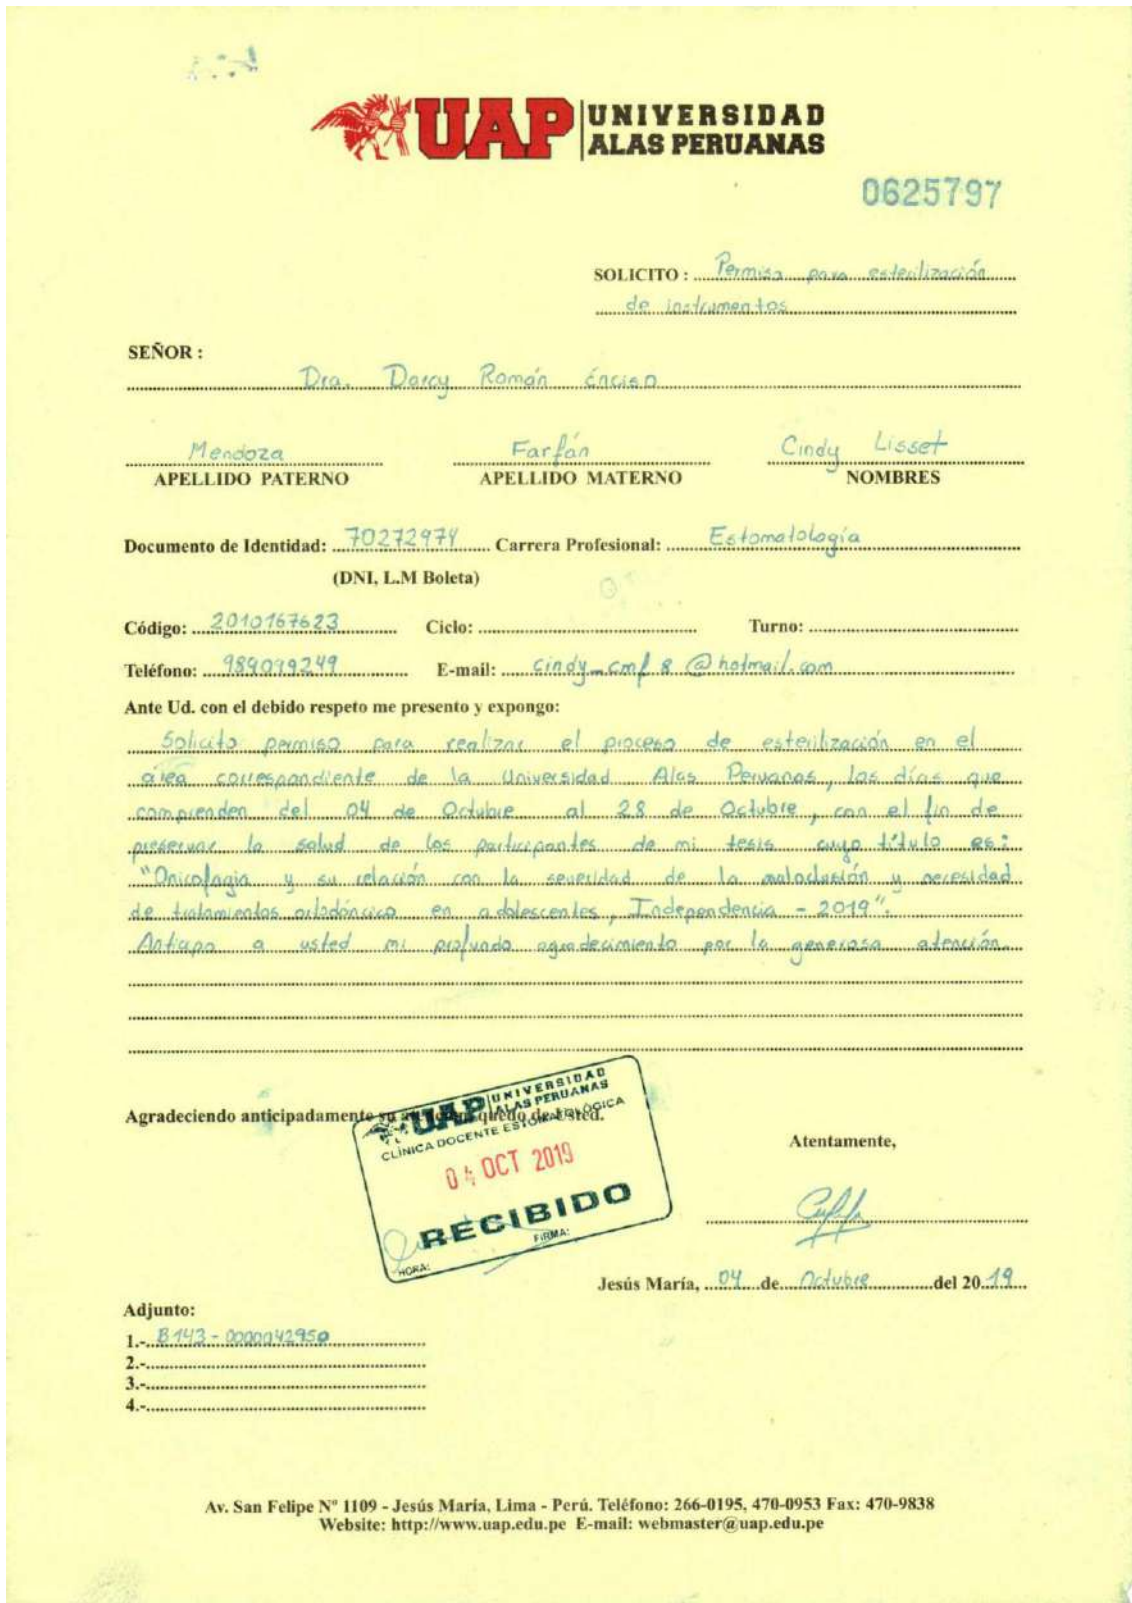 UAP UNIVERSIDAD
ALAS PERUANAS
0625797
SOLICITO : Permiso para esterilización
de instrumentos
SEÑOR :
Dra. Darcy Román Enciso
Mendoza Farfán Cindy Lisset
APELLIDO PATERNO APELLIDO MATERNO NOMBRES
Documento de Identidad: 70272974 Carrera Profesional: Estomatología
(DNI, L.M Boleta)
Código: 2010167623 Ciclo: Turno:
Teléfono: 989099249 E-mail: cindy_cmf_8@hotmail.com
Ante Ud. con el debido respeto me presento y expongo:
Solicito permiso para realizar el proceso de esterilización en el
área correspondiente de la Universidad Alas Peruanas, los días que
comprenden del 04 de Octubre al 28 de Octubre, con el fin de
preservar la salud de los participantes de mi tesis cuyo título es:
"Onicofagia y su relación con la severidad de la maloclusión y necesidad
de tratamientos ortodóncico en adolescentes, Independencia - 2019".
Anticipo a usted mi profundo agradecimiento por la generosa atención.
Agradeciendo anticipadamente su atención quedo de Usted.
UAP UNIVERSIDAD
ALAS PERUANAS
CLÍNICA DOCENTE ESTOMATOLÓGICA
04 OCT 2019
RECIBIDO
HORA: FIRMA:
Atentamente,
Jesús María, 04 de Octubre del 2019
Adjunto:
1.- B143-0000042950
2.-
3.-
4.-
Av. San Felipe Nº 1109 - Jesús María, Lima - Perú. Teléfono: 266-0195, 470-0953 Fax: 470-9838
Website: http://www.uap.edu.pe E-mail: webmaster@uap.edu.pe